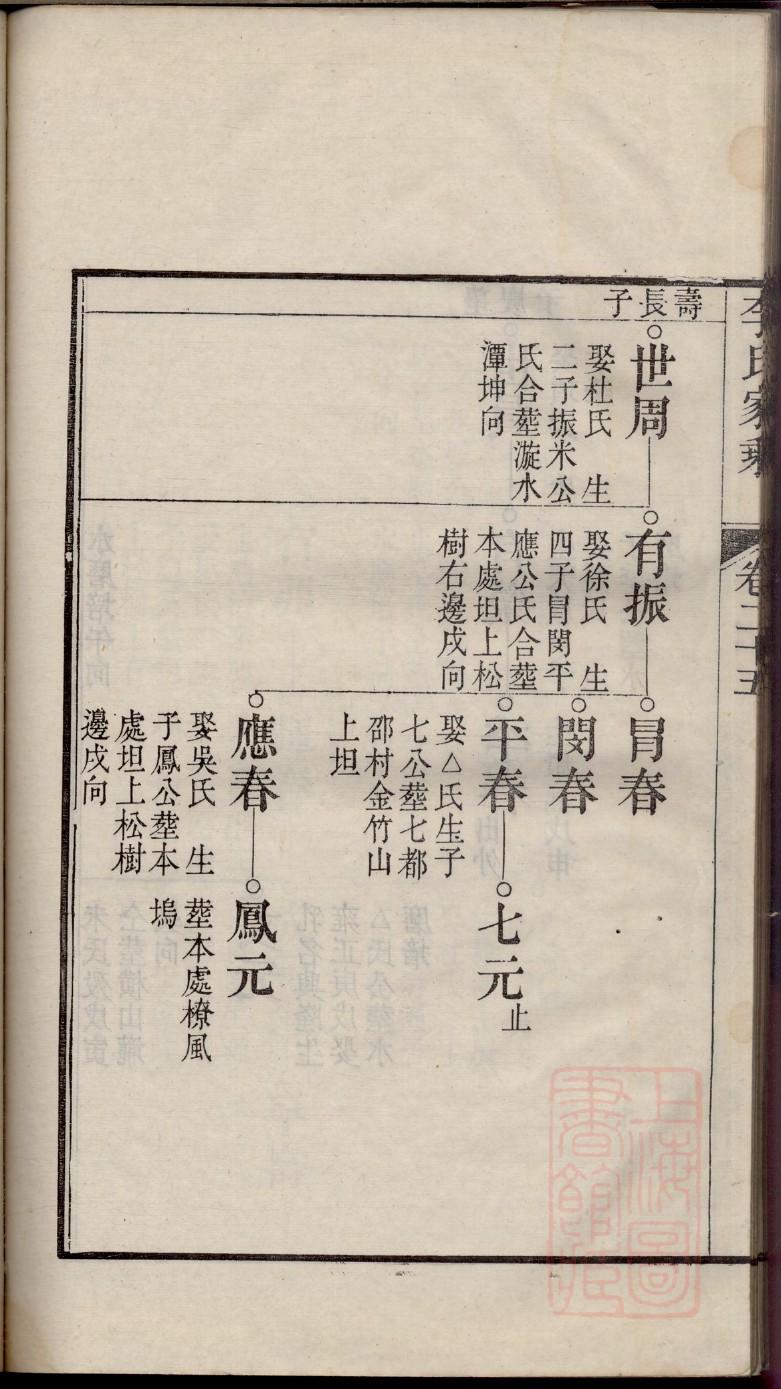 李氏家乘
卷二十五
壽長子
世周
娶杜氏 生
二子振米公
氏合塟漩水
潭坤向
有振
娶徐氏 生
四子冐閔平
應公氏合塟
本處坦上松
樹右邊戌向
冐春
閔春
平春
娶△氏生子
七公塟七都
邵村金竹山
上坦
七元
止
應春
娶吳氏 生
子鳳公塟本
處坦上松樹
邊戌向
鳳元
塟本處橑風
塢
上海圖
書館藏